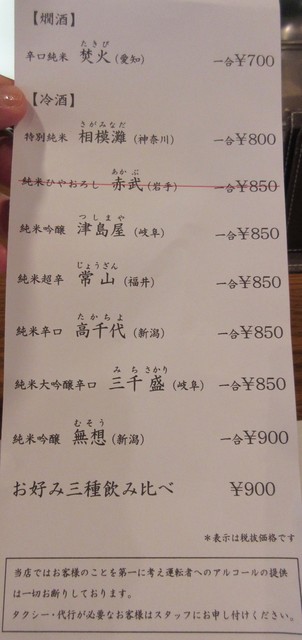 【燗酒】
たきび
辛口純米 焚火（愛知） 一合¥700
【冷酒】
さがみなだ
特別純米 相模灘（神奈川） 一合¥800
あかぶ
純米ひやおろし 赤武（岩手） 一合¥850
つしまや
純米吟醸 津島屋（岐阜） 一合¥850
じょうざん
純米超辛 常山（福井） 一合¥850
たかちよ
純米辛口 高千代（新潟） 一合¥850
みちさかり
純米大吟醸辛口 三千盛（岐阜） 一合¥850
むそう
純米吟醸 無想（新潟） 一合¥900
お好み三種飲み比べ ¥900
＊表示は税抜価格です
当店ではお客様のことを第一に考え運転者へのアルコールの提供
は一切お断りしております。
タクシー・代行が必要なお客様はスタッフにお申し付けください。